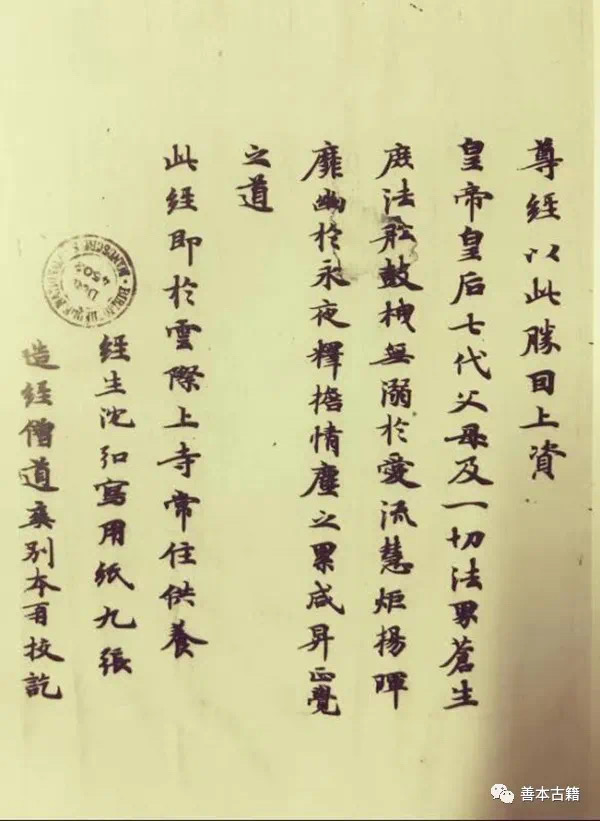 尊經以此勝囙上資
皇帝皇后七代父母及一切法界蒼生
庶法舩鼓栧無溺於愛流慧炬揚暉
靡幽於永夜釋擔情塵之累咸昇正覺
之道
此經即於雲際上寺常住供養
經生沈弘寫用紙九張
造經僧道爽別本再校訖
善本古籍